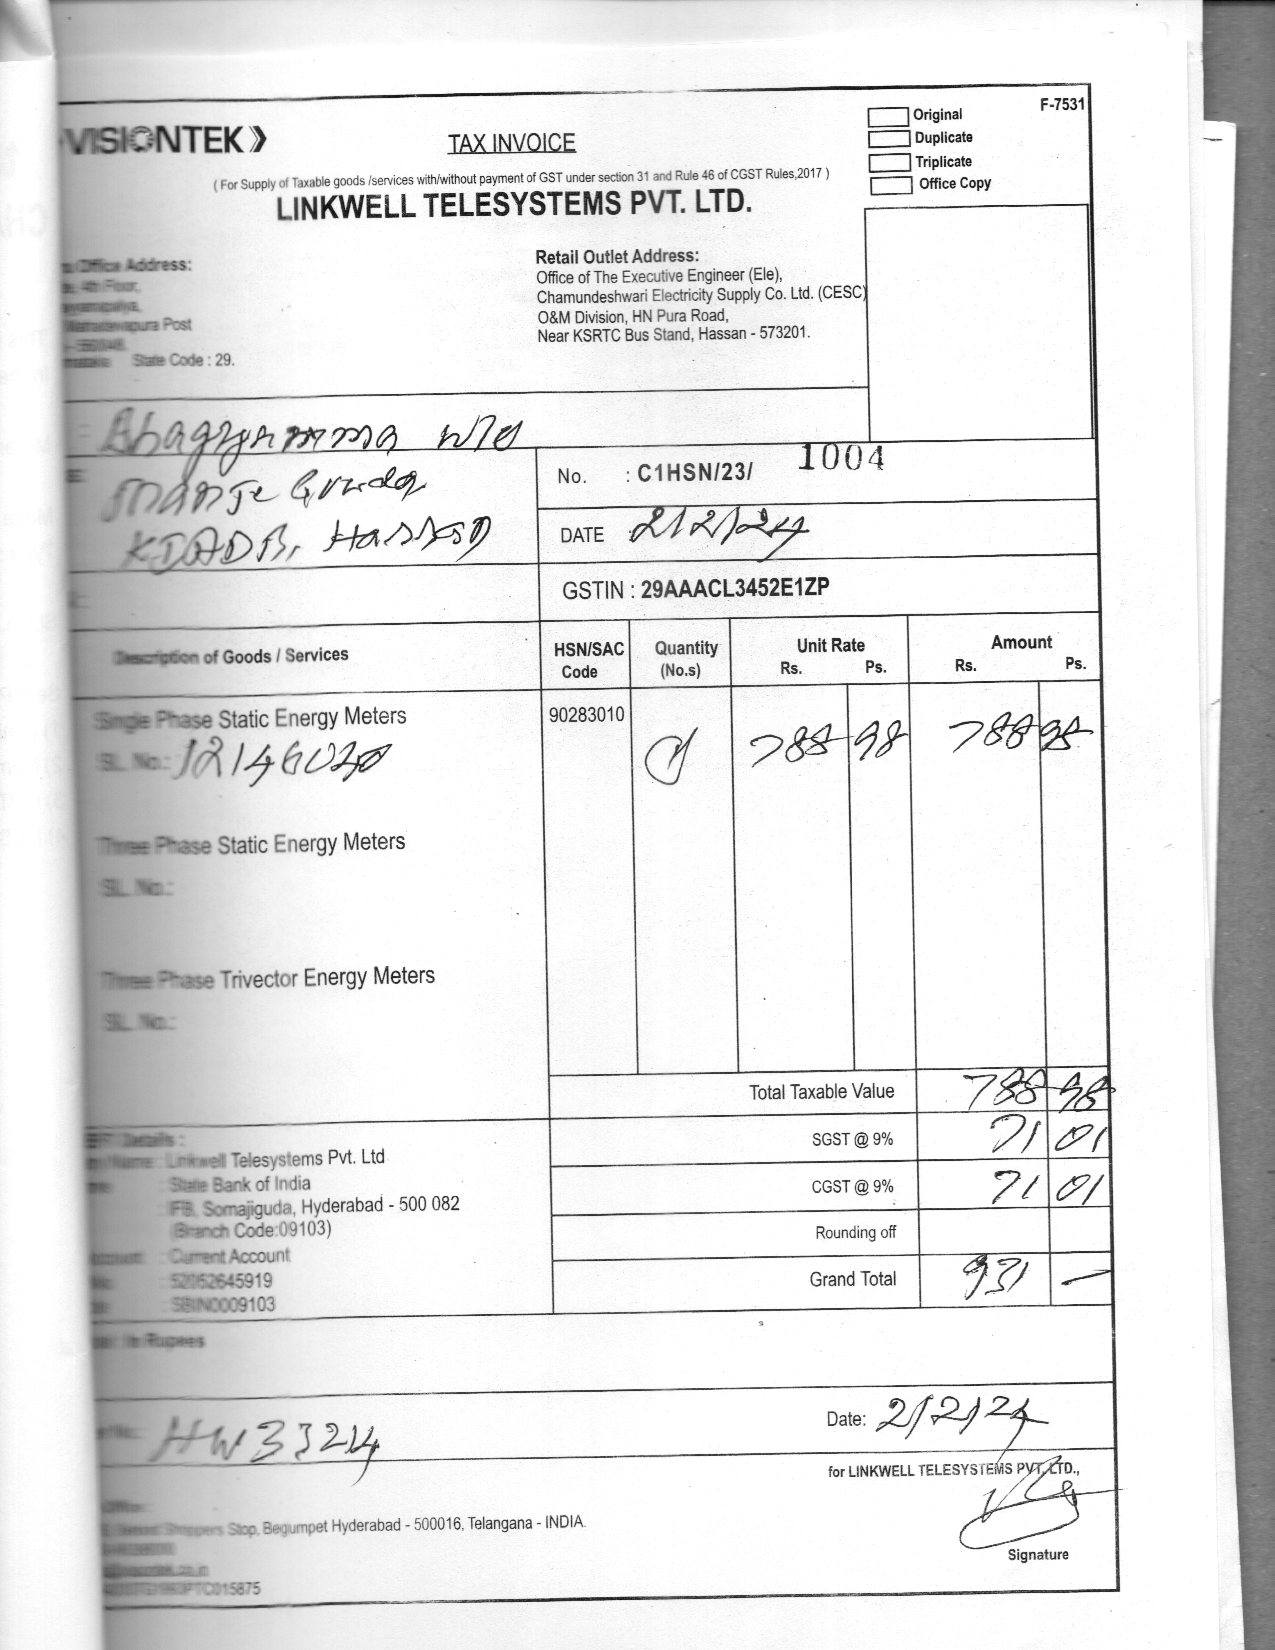 F-7531
Original
Duplicate
Triplicate
Office Copy
VISIONTEK
TAX INVOICE
( For Supply of Taxable goods /services with/without payment of GST under section 31 and Rule 46 of CGST Rules,2017 )
LINKWELL TELESYSTEMS PVT. LTD.
Office Address:
4th Floor,
Post
State Code : 29.
Retail Outlet Address:
Office of The Executive Engineer (Ele),
Chamundeshwari Electricity Supply Co. Ltd. (CESC)
O&M Division, HN Pura Road,
Near KSRTC Bus Stand, Hassan - 573201.
Bhagyamma w/o
Manje Gowda
KIADB, Hassan
No. : C1HSN/23/ 1004
DATE 2/2/24
GSTIN : 29AAACL3452E1ZP
Description of Goods / Services HSN/SAC Code Quantity (No.s) Unit Rate Rs. Ps. Amount Rs. Ps.
Single Phase Static Energy Meters 90283010 1 788 98 788 98
SL. No.:
Three Phase Static Energy Meters
SL. No.:
Three Phase Trivector Energy Meters
SL. No.:
Total Taxable Value 788 98
SGST @ 9% 71 01
CGST @ 9% 71 01
Rounding off
Grand Total 931 —
Details :
Name : Linkwell Telesystems Pvt. Ltd
: State Bank of India
Somajiguda, Hyderabad - 500 082
(Branch Code:09103)
: Current Account
: 52052645919
: SBIN0009103
In Rupees
HW3324
Date: 2/2/24
for LINKWELL TELESYSTEMS PVT. LTD.,
Shoppers Stop, Begumpet Hyderabad - 500016, Telangana - INDIA.
PTC015875
Signature